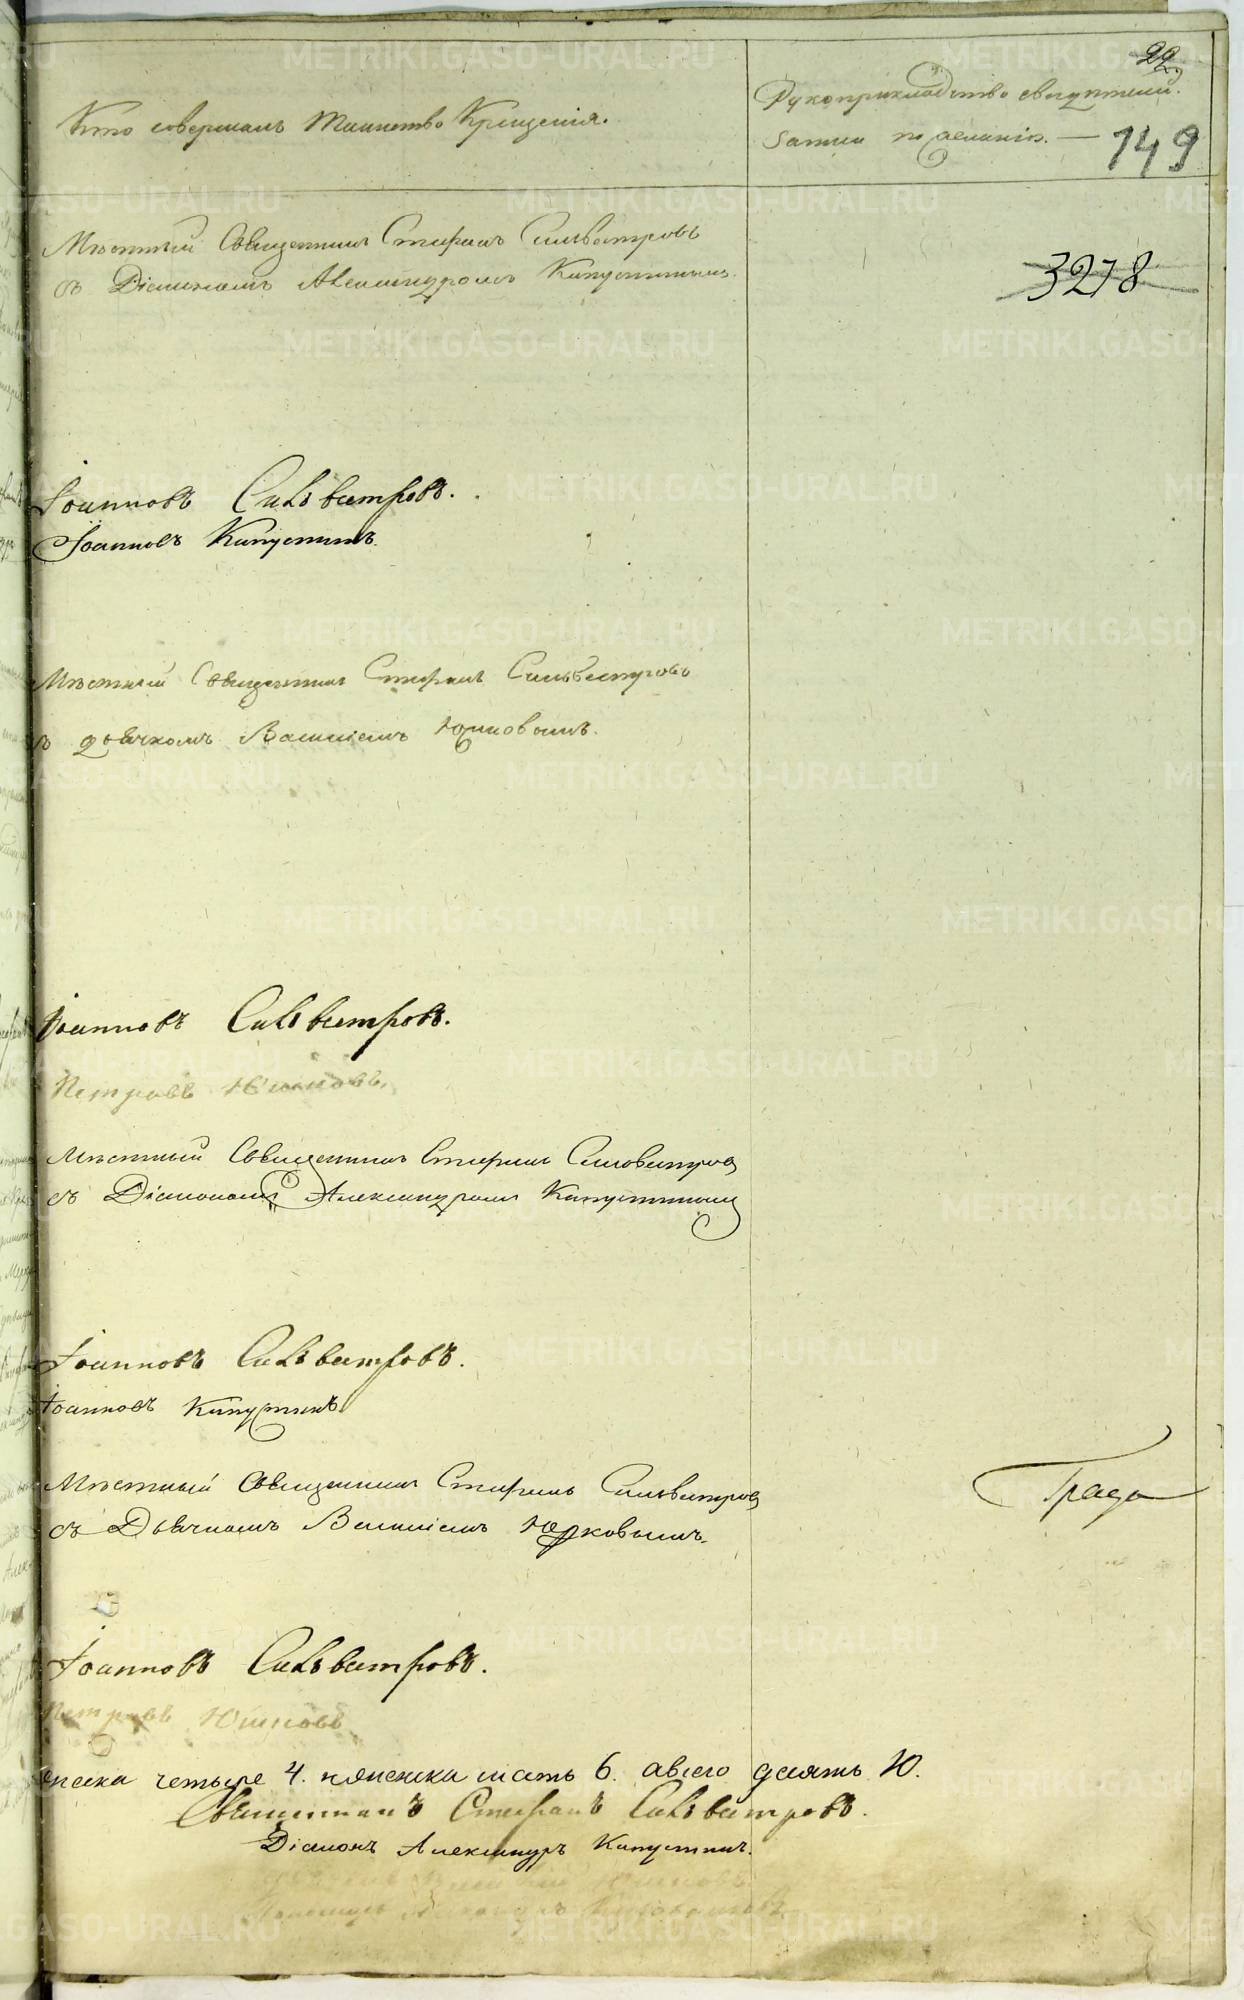 22
Кто совершалъ таинство Крещенія.
Рукоприкладство свидѣтелей
записи по желанію. —
149
Мѣстный Священникъ Стефанъ Сильвестровъ
съ Діакономъ Александромъ Капустинымъ.
3278
Іоанновъ Сильвестровъ.
Іоанновъ Капустинъ.
Мѣстный Священникъ Стефанъ Сильвестровъ
съ дьячкомъ Василіемъ
Іоанновъ Сильвестровъ.
Петровъ
Мѣстный Священникъ Стефанъ Сильвестровъ
съ Діакономъ Александромъ Капустинымъ
Іоанновъ Сильвестровъ.
Іоанновъ Капустинъ
Мѣстный Священникъ Стефанъ Сильвестровъ
съ Дьячкомъ Василіемъ
Іоанновъ Сильвестровъ.
Петровъ
четыре 4. женска шесть 6. а всего десять 10.
Священникъ Стефанъ Сильвестровъ.
Діаконъ Александръ Капустинъ.
METRIKI.GASO-URAL.RU